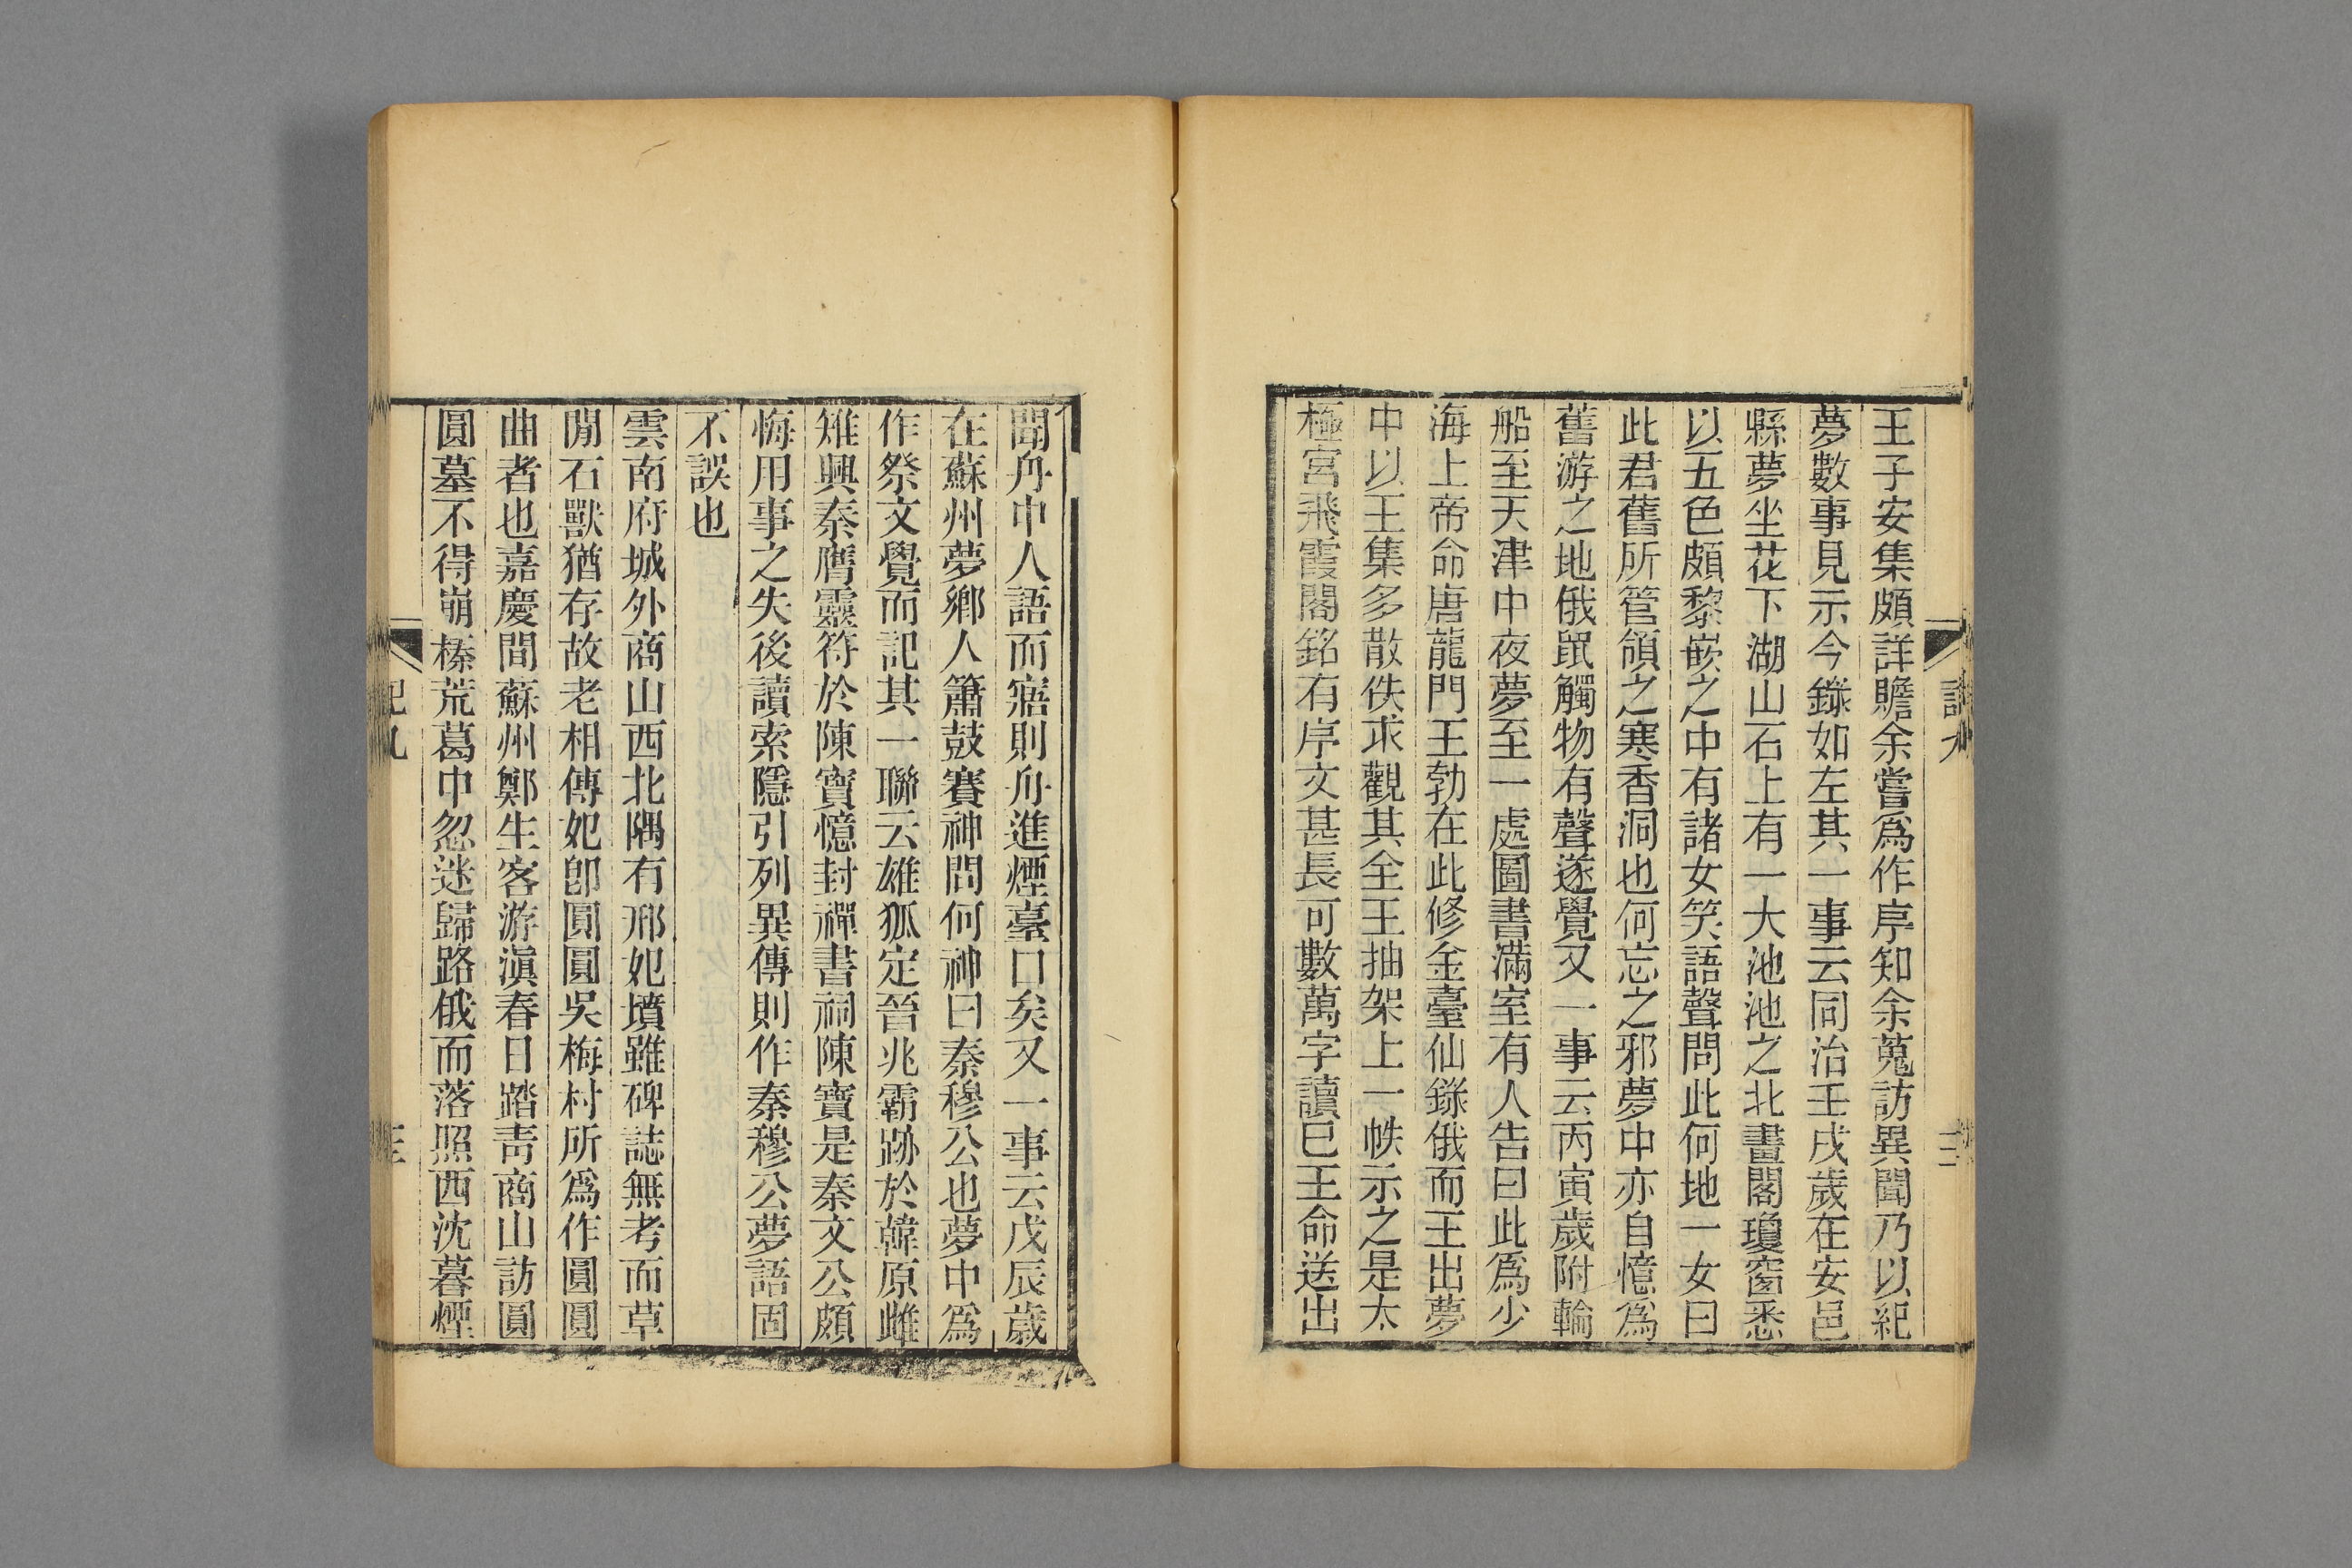 王子安集頗詳贍余嘗爲作序知余蒐訪異聞乃以紀
夢數事見示今錄如左其一事云同治壬戌歲在安邑
縣夢坐花下湖山石上有一大池池之北畫閣瓊窗悉
以五色頗黎嵌之中有諸女笑語聲問此何地一女曰
此君舊所管領之寒香洞也何忘之邪夢中亦自憶爲
舊游之地俄鼠觸物有聲遂覺又一事云丙寅歲附輪
船至天津中夜夢至一處圖書滿室有人告曰此爲少
海上帝命唐龍門王勃在此修金臺仙錄俄而王出夢
中以王集多散佚求觀其全王抽架上一帙示之是太
極宮飛霞閣銘有序文甚長可數萬字讀已王命送出
聞舟中人語而寤則舟進煙臺口矣又一事云戊辰歲
在蘇州夢鄉人簫鼓賽神問何神曰秦穆公也夢中爲
作祭文覺而記其一聯云雄狐定晉兆霸跡於韓原雌
雉興秦膺靈符於陳寶憶封禪書祠陳寶是秦文公頗
悔用事之失後讀索隱引列異傳則作秦穆公夢語固
不誤也
雲南府城外商山西北隅有邢妃墳雖碑誌無考而草
閒石獸猶存故老相傳妃卽圓圓吳梅村所爲作圓圓
曲者也嘉慶間蘇州鄭生客游滇春日踏靑商山訪圓
圓墓不得崩榛荒葛中忽迷歸路俄而落照西沈暮煙